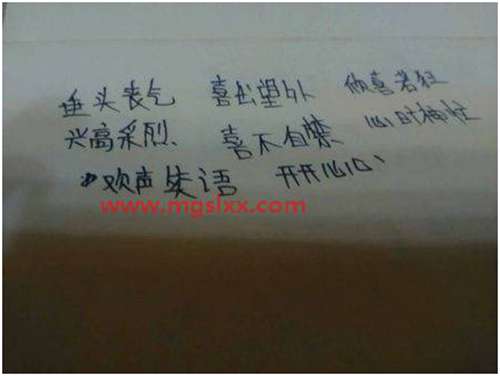 垂头丧气 喜出望外 欣喜若狂
兴高采烈、 喜不自禁 心旷神怡
欢声笑语 开开心心、
www.mgslxx.com